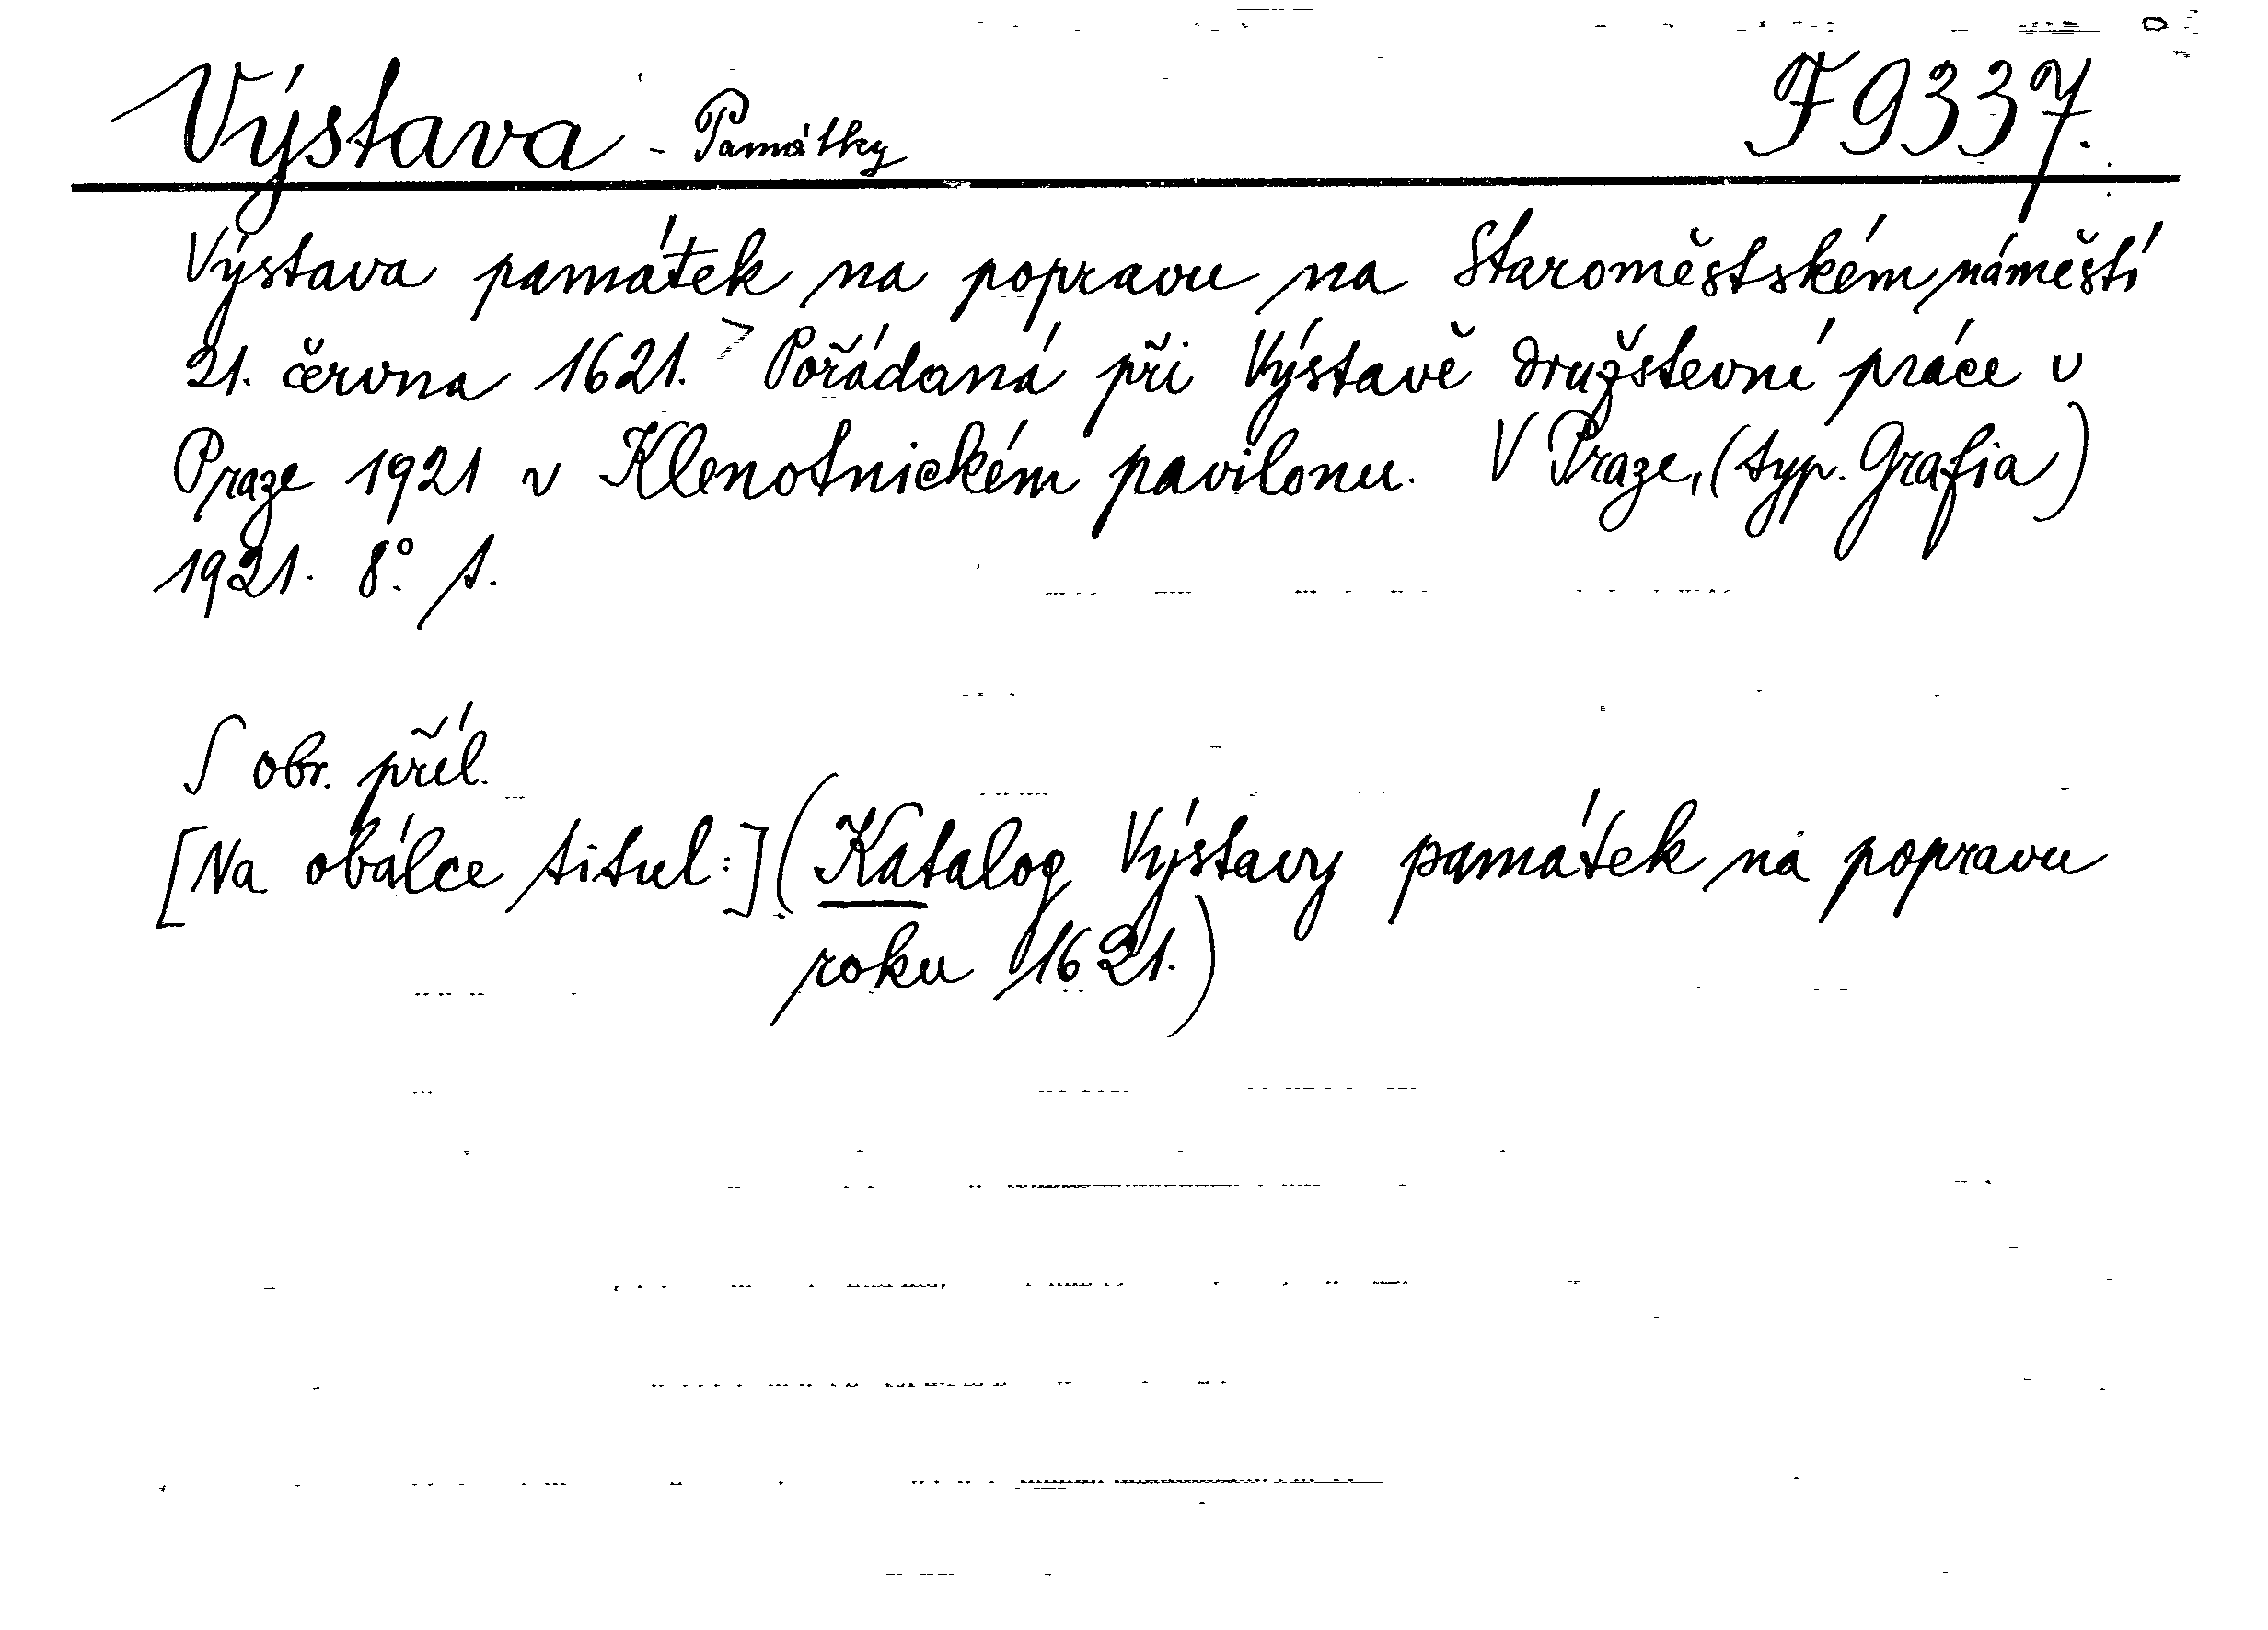 Výstava - Památky F 9337.
Výstava památek na popravu na Staroměstském náměstí
21. června 1621. Pořádaná při Výstavě družstevní práce v
Praze 1921 v Klenotnickém pavilonu. V Praze, (typ. Grafia)
1921. 8°. s.
S obr. příl.
[Na obálce titul:] (Katalog Výstavy památek na popravu
roku 1621.)